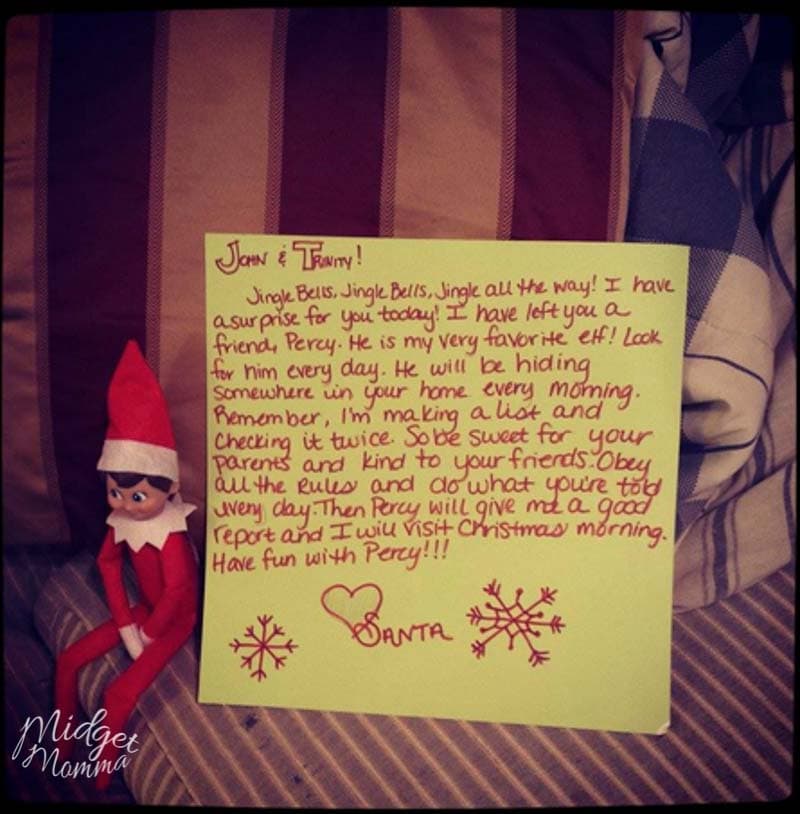 John & Trinity!
Jingle Bells, Jingle Bells, Jingle all the way! I have
a surprise for you today! I have left you a
friend, Percy. He is my very favorite elf! Look
for him every day. He will be hiding
somewhere in your home every morning.
Remember, I'm making a list and
checking it twice. So be sweet for your
parents and kind to your friends. Obey
all the rules and do what you're told
every day. Then Percy will give me a good
report and I will visit Christmas morning.
Have fun with Percy!!!
Santa
Midget
Momma